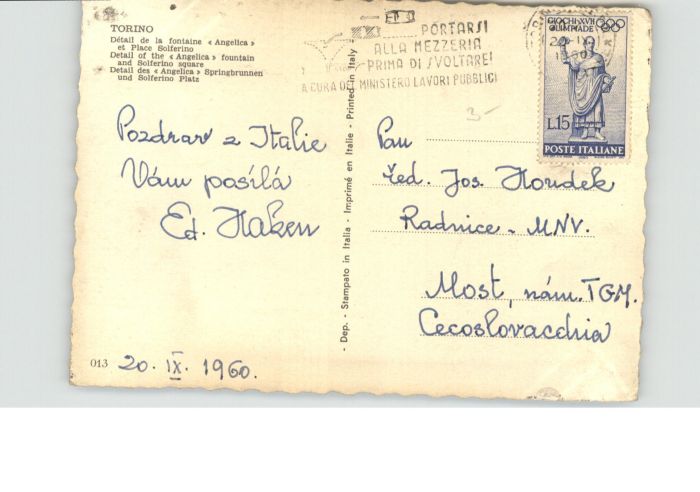 TORINO
Détail de la fontaine « Angelica »
et Place Solferino
Detail of the « Angelica » fountain
and Solferino square
Detail des « Angelica » Springbrunnen
und Solferino Platz
PORTARSI
ALLA MEZZERIA
PRIMA DI SVOLTARE!
A CURA DEL MINISTERO LAVORI PUBBLICI
GIOCHI XVII
OLIMPIADE
1960
L.15
POSTE ITALIANE
3-
Pozdrav z Italie
Vám posílá
Ed. Haken
013 20. IX. 1960.
- Dep. - Stampato in Italia - Imprimé en Italie - Printed in Italy -
Pan
řed. Jos. Houdek
Radnice - MNV.
Most, nám. TGM.
Cecoslovacchia